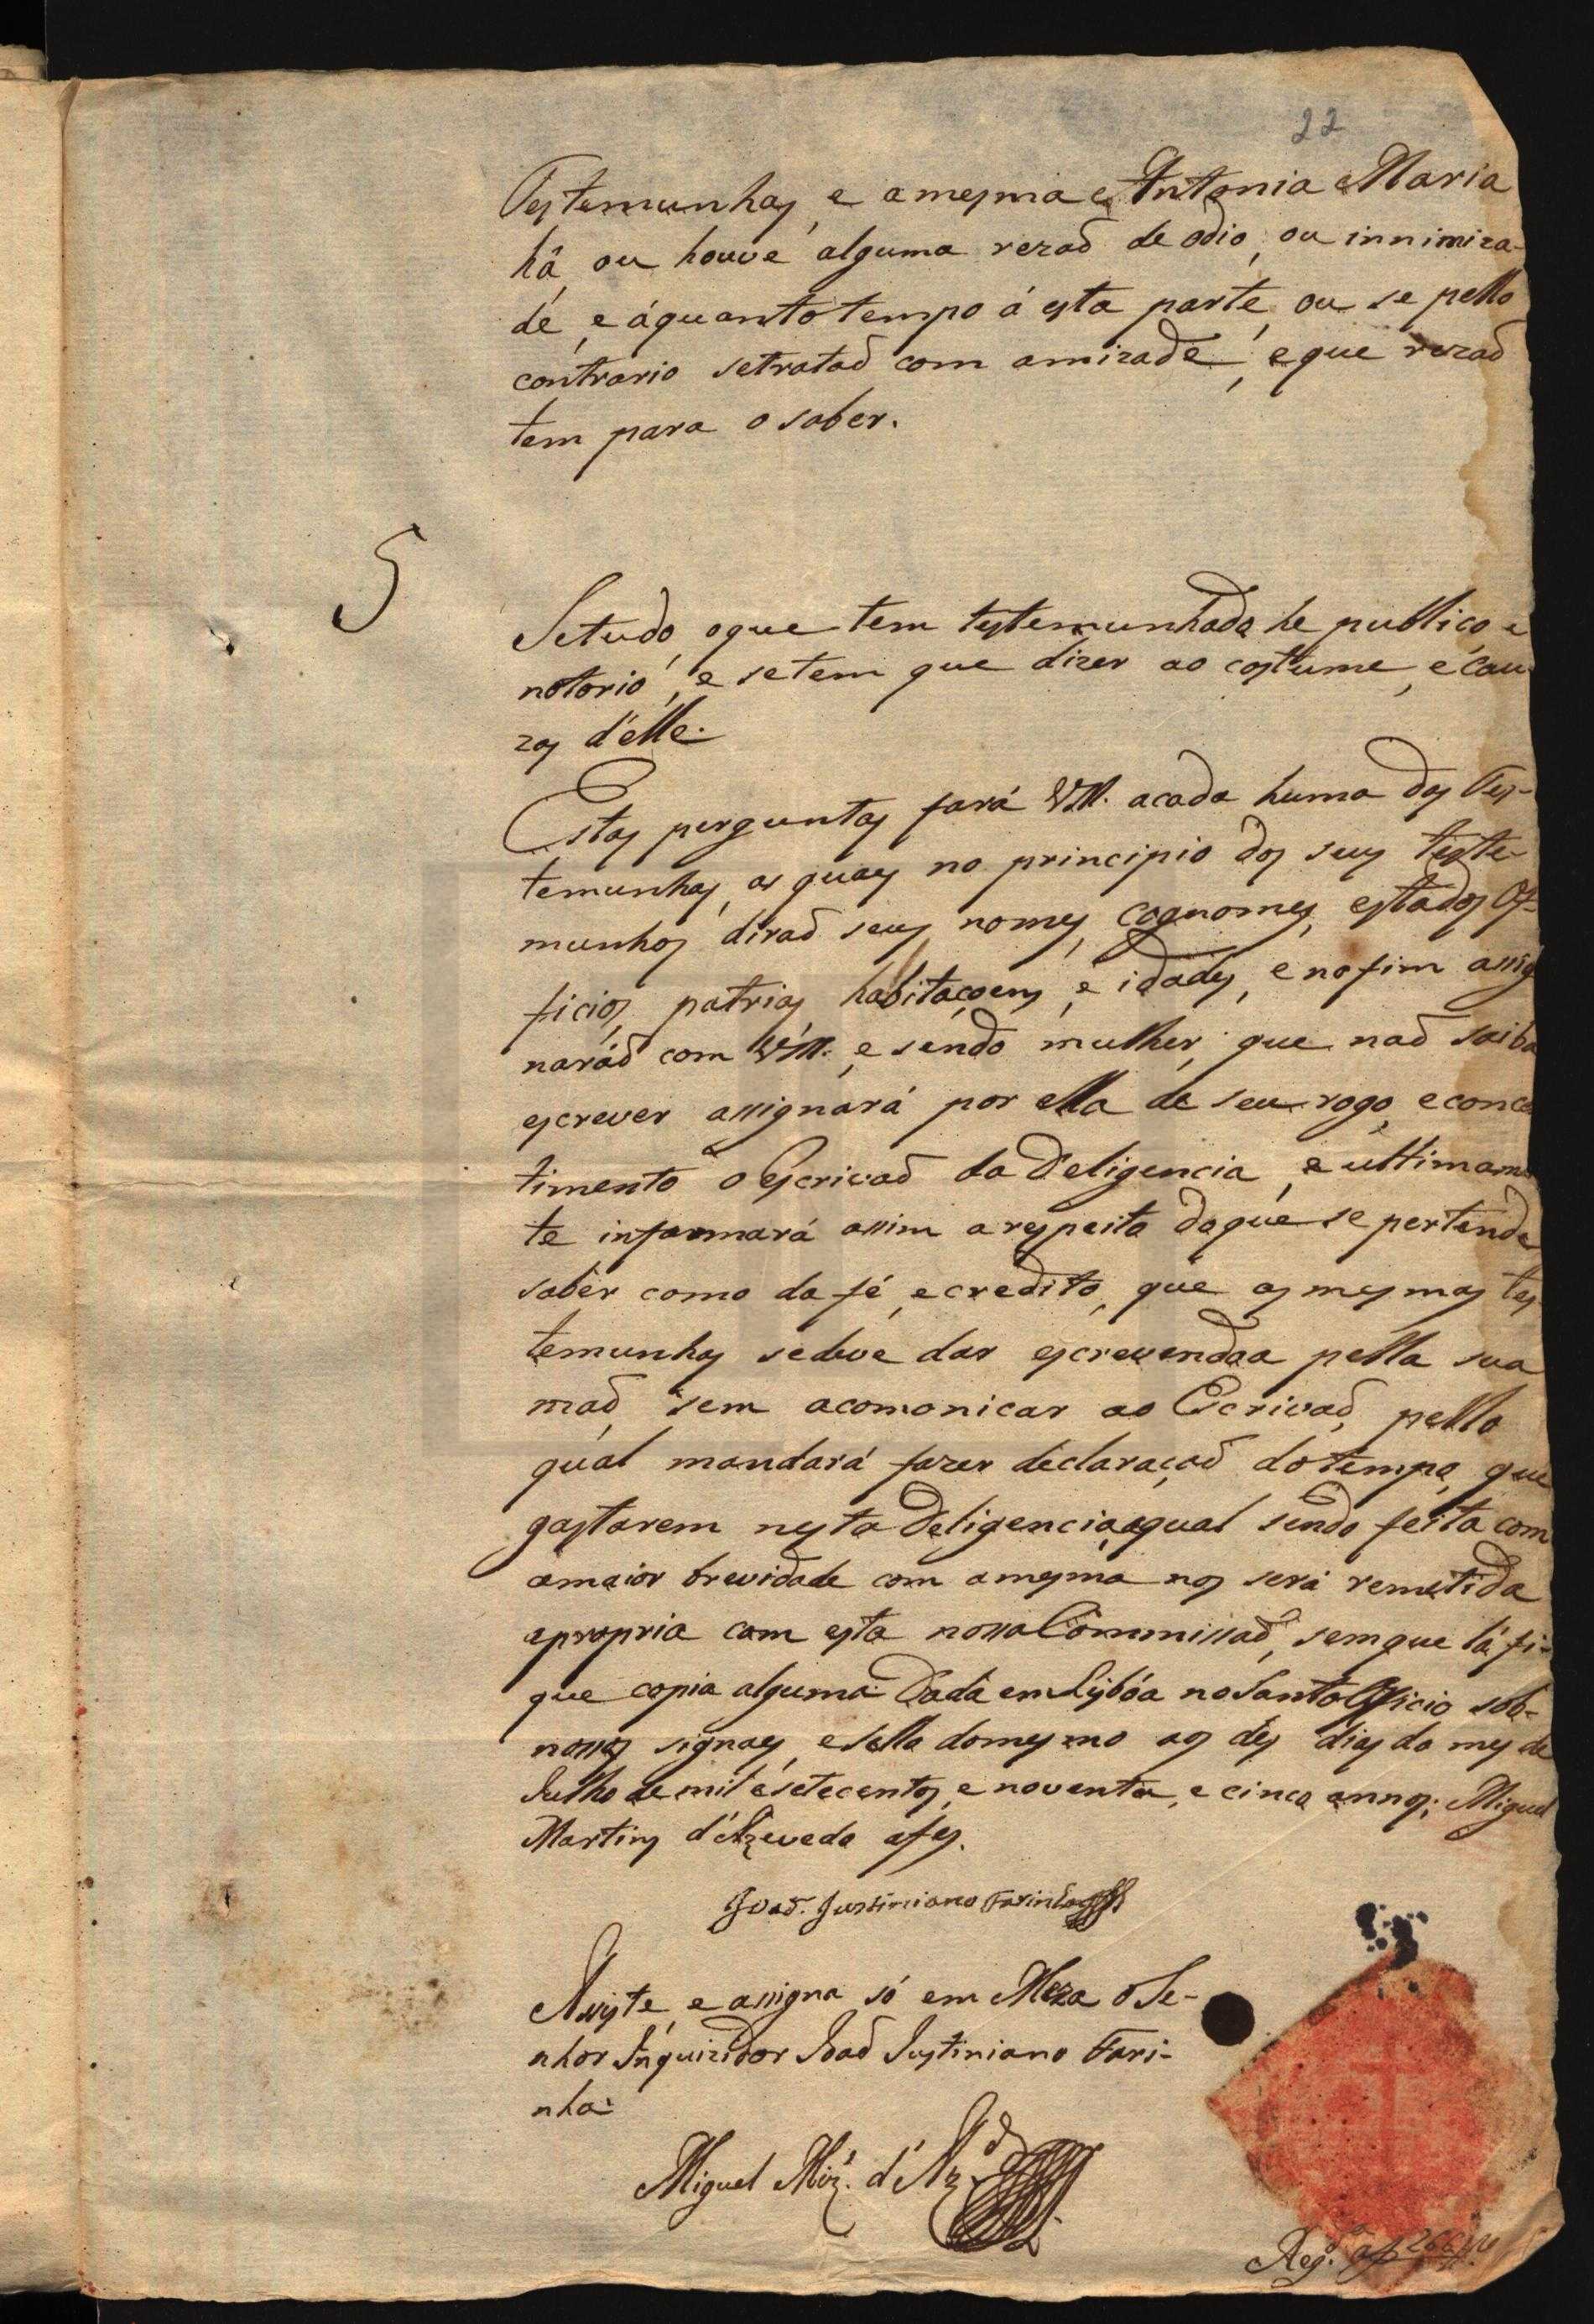 22
Testemunhas, e a mesma Antonia Maria
há, ou houve alguma rezaõ de odio, ou innimiza-
de, e áquanto tempo á esta parte, ou se pello
contrario setrataõ com amizade, eque rezaõ
tem para o saber.
5
Setudo, oque tem testemunhado he publico, e
notorio, e setem que dizer ao costume, e cau
zas d'elle.
Estas perguntas fará VM. acada huma das Tes-
temunhas, as quaes no principio dos seus teste-
munhos diraõ seus nomes, cognomes, estados Of-
ficios, patrias, habitaçoens, e idades, e nofim assig
naráõ com VM. e sendo mulher, que naõ saiba
escrever assignará por ella de seu rogo, econce
timento o Escrivaõ da Deligencia, e ultimamen
te informará assim a respeito doque se pertende
saber como da fé, ecredito, que as mesmas tes
temunhas sedeve dar escrevendoa pella sua
maõ, sem acomonicar ao Escrivaõ, pello
qual mandará fazer declaraçaõ dotempo, que
gastarem nesta Deligencia, aqual sendo feita com
amaior brevidade com amesma nos será remetida
apropria com esta nossa Commissaõ, semque lá fi-
que copia alguma. Dada em Lisbóa no Santo Officio sob-
nossos signaes, esello domesmo aos des dias do mes de
Julho de mil esetecentos, e noventa, e cinco annos; Miguel
Martins d'Azevedo afes.
Joaõ. Justiniano Farinha
Assiste, e assigna só em Meza o Se-
nhor Inquizidor Joaõ Justiniano Fari-
nha.
Miguel Miz. d'Az.do
Reg.da af